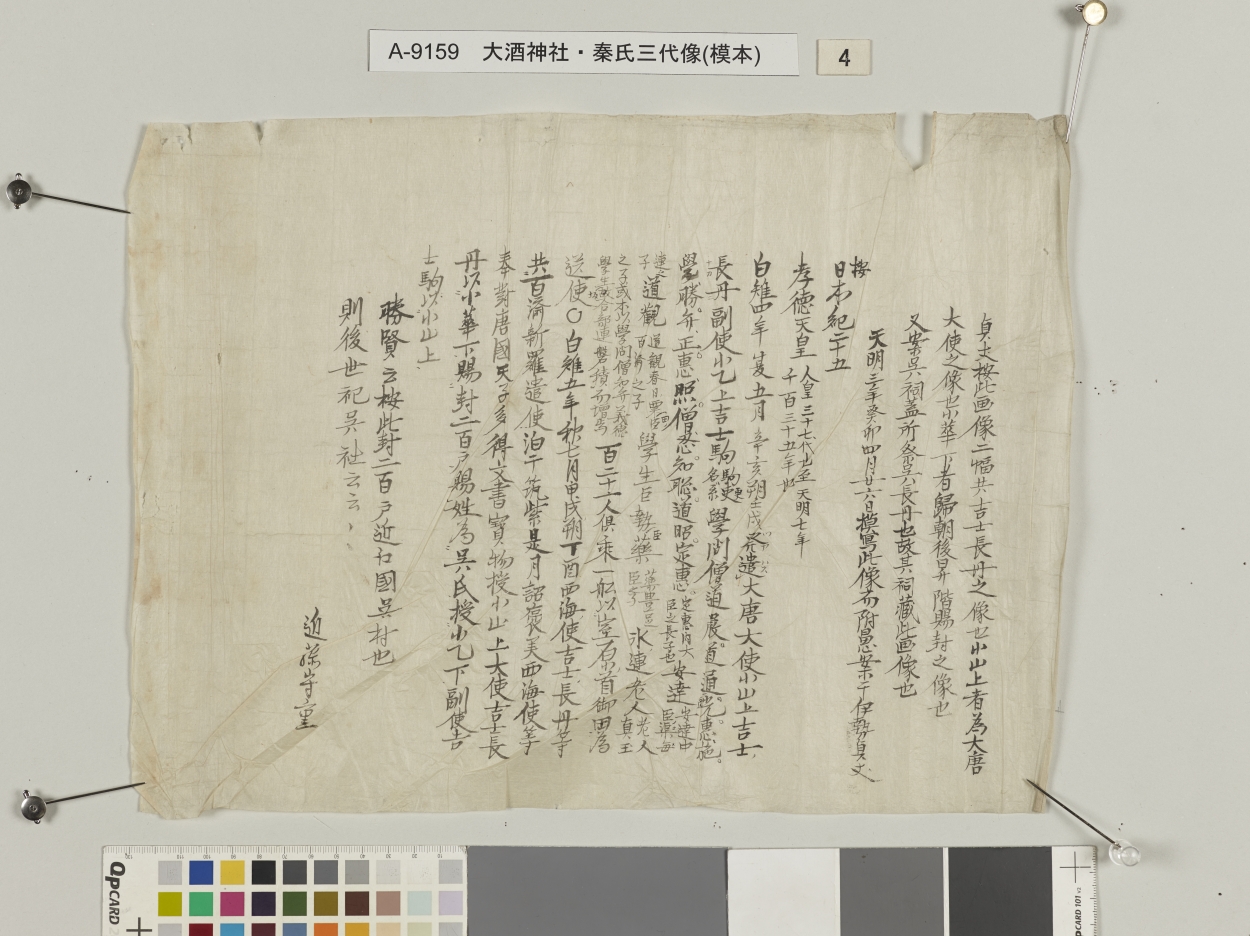 A-9159 大酒神社・秦氏三代像(模本)
4
貞丈按此画像二幅共吉士長丹之像也小山上者為大唐
大使之像也小華下者歸朝後昇階賜封之像也
又案呉祠蓋所祭呉長丹也故其祠藏此画像也
天明三年癸卯四月廿六日摸寫此像而附愚案于伊勢貞丈
按
日本紀二十五
孝德天皇 人皇三十七代也至天明七年
千百三十五年也
白雉四年夏五月辛亥朔壬戌発遣大唐大使小山上吉士
長丹副使小乙上吉士駒 駒更名糸 學問僧道嚴。道通。道光。惠施。
覺勝。弁正。惠照。僧忍。知聡。道昭。定惠 定惠内大臣之長子也 安達 安達中臣渠毎
連之子 道觀 道觀春日粟田臣百済之子 學生巨勢臣藥 藥豊足臣子 氷連老人 老人真玉
之子或本以學問僧知弁義德
學生坂合部連磐積而増焉 百二十一人倶乗一舩以室原首御田為
送使〇白雉五年秋七月甲戌朔丁酉西海使吉士長丹等
共百濟新羅遣使泊于筑紫是月詔褒美西海使等
奉對唐國天子多得文書寶物授小山上大使吉士長
丹以小華下賜封二百戸賜姓為呉氏授小乙下副使吉
士駒以小山上
勝賢云按此封二百戸近江國呉村也
則後世祀呉社云云
近藤守重
QPCARD
QPCARD 101